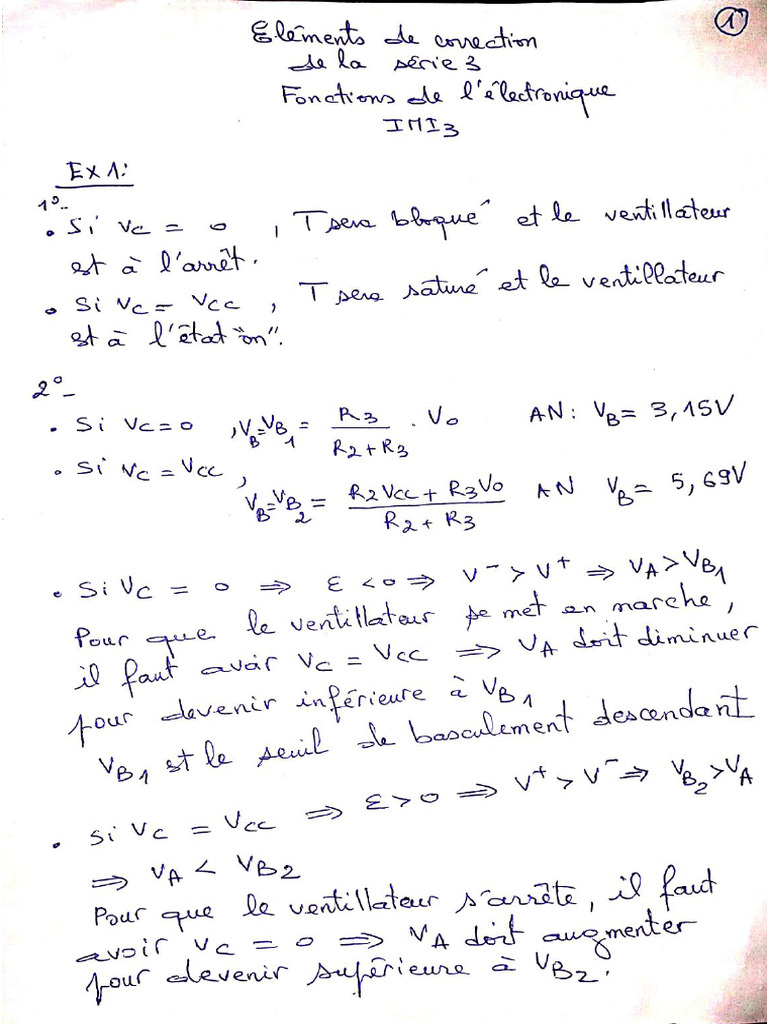 1
Eléments de correction
de la série 3
Fonctions de l'électronique
IMI3
EX 1:
1°-
• Si VC = 0 , T sera bloqué et le ventillateur
est à l'arrêt.
• Si VC = VCC , T sera saturé et le ventillateur
est à l'état "on".
2°-
• Si VC = 0 , VB = VB1 = R3 / (R2 + R3) . V0 AN: VB = 3,15V
• Si VC = VCC ,
VB = VB2 = (R2 VCC + R3 V0) / (R2 + R3) AN VB = 5,69V
• Si VC = 0 ⇒ ε < 0 ⇒ V⁻ > V⁺ ⇒ VA > VB1
Pour que le ventillateur se met en marche,
il faut avoir VC = VCC ⇒ VA doit diminuer
pour devenir inférieure à VB1
VB1 est le seuil de basculement descendant
• Si VC = VCC ⇒ ε > 0 ⇒ V⁺ > V⁻ ⇒ VB2 > VA
⇒ VA < VB2
Pour que le ventillateur s'arrête, il faut
avoir VC = 0 ⇒ VA doit augmenter
pour devenir supérieure à VB2.